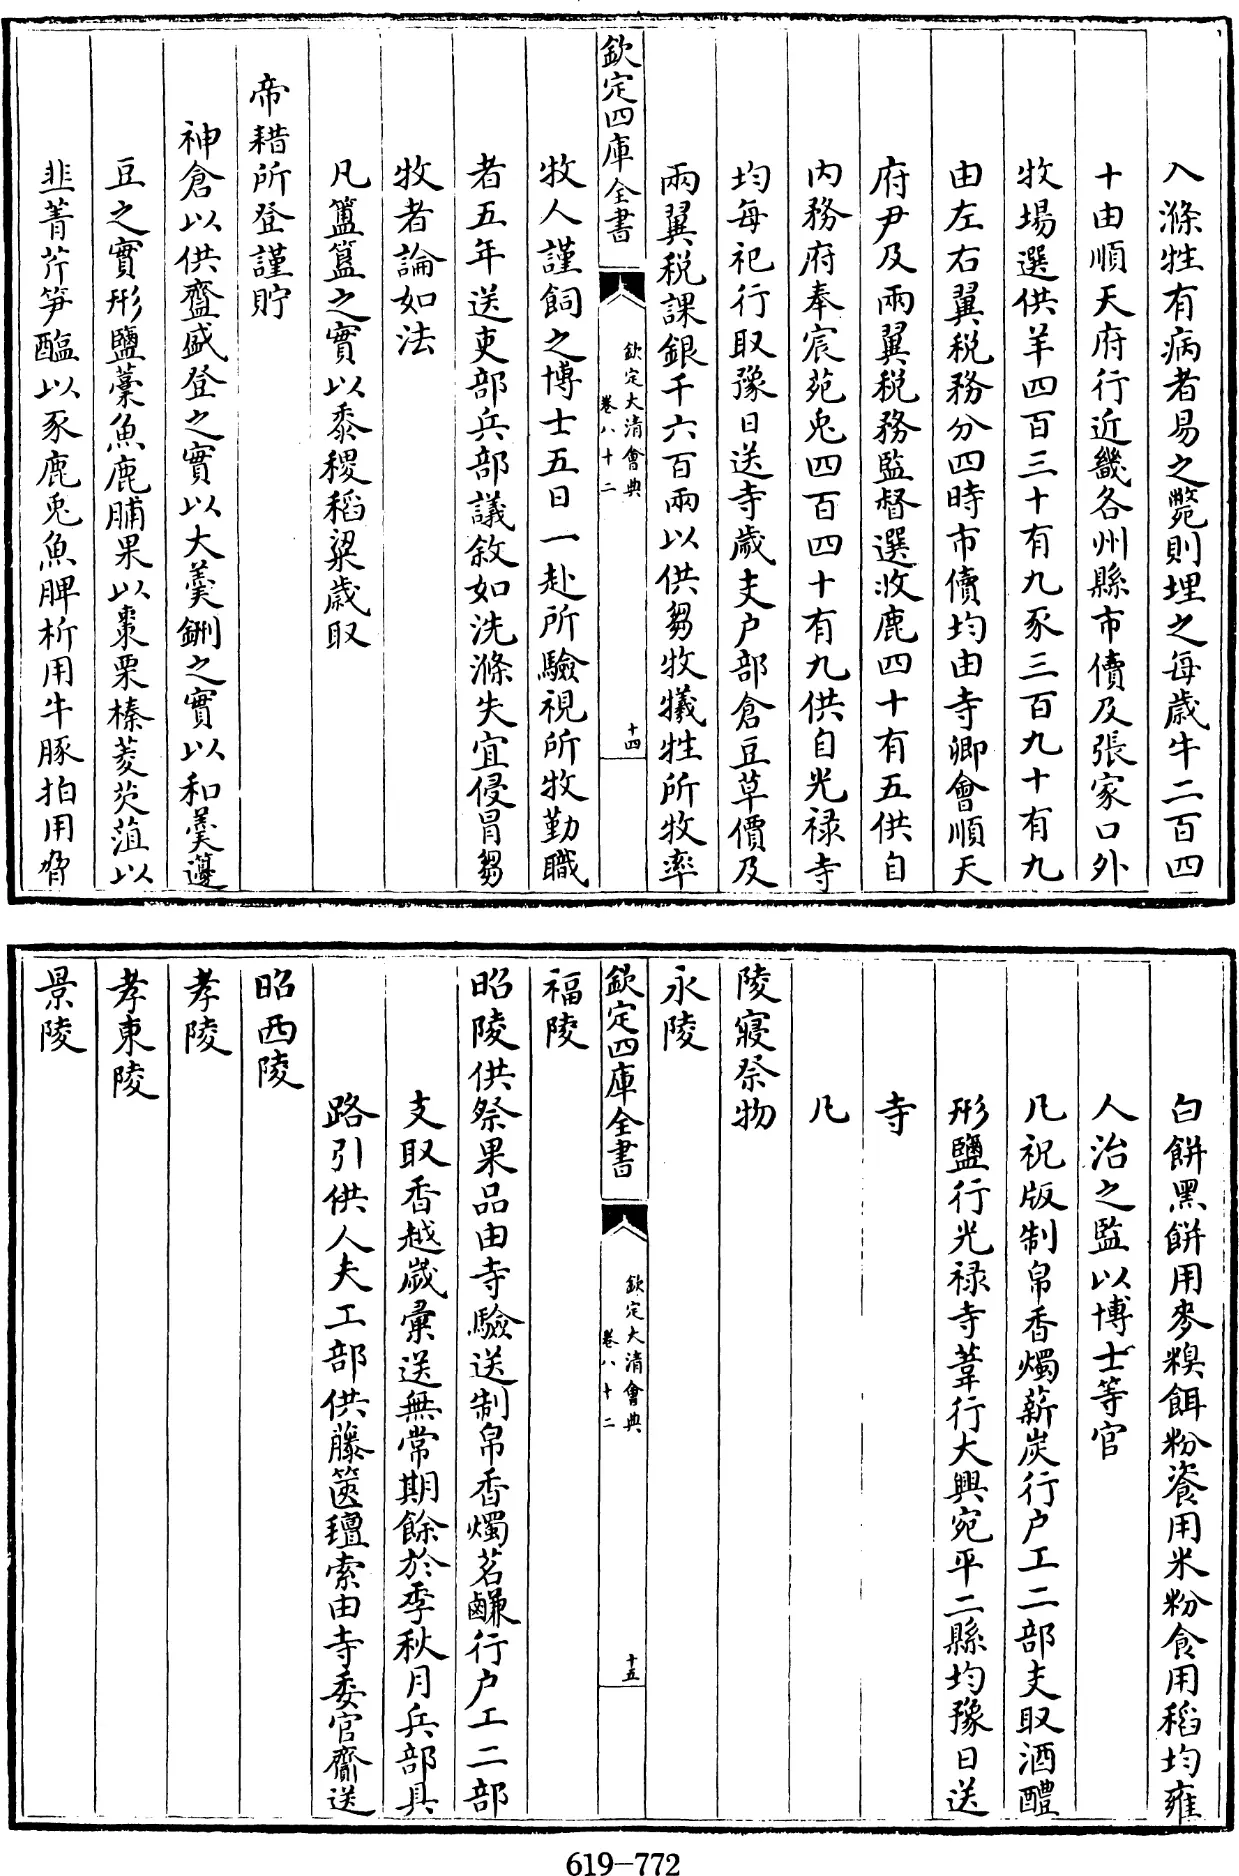 入滌牲有病者易之斃則埋之每歲牛二百四
十由順天府行近畿各州縣市價及張家口外
牧場選供羊四百三十有九豕三百九十有九
由左右翼稅務分四時市價均由寺卿會順天
府尹及兩翼稅務監督選收鹿四十有五供自
內務府奉宸苑兎四百四十有九供自光祿寺
均每祀行取豫日送寺歲支户部倉豆草價及
兩翼稅課銀千六百兩以供芻牧犧牲所牧率
欽定四庫全書
欽定大清會典
卷八十二
十四
牧人謹飼之博士五日一赴所驗視所牧勤職
者五年送吏部兵部議敘如洗滌失宜侵冒芻
牧者論如法
凡簠簋之實以黍稷稻粱歲取
帝耤所登謹貯
神倉以供齍盛登之實以大羹鉶之實以和羹籩
豆之實形鹽薧魚鹿脯果以棗栗榛菱芡菹以
韭菁芹笋醢以豕鹿兎魚脾析用牛豚拍用脅
白餅黑餅用麥糗餌粉餈用米粉食用稻均雍
人治之監以博士等官
凡祝版制帛香燭薪炭行户工二部支取酒醴
形鹽行光祿寺葦行大興宛平二縣均豫日送
寺
凡
陵寢祭物
永陵
欽定四庫全書
欽定大清會典
卷八十二
十五
福陵
昭陵供祭果品由寺驗送制帛香燭茗鹻行户工二部
支取香越歲彙送無常期餘於季秋月兵部具
路引供人夫工部供藤篋氊索由寺委官齎送
昭西陵
孝陵
孝東陵
景陵
619-772